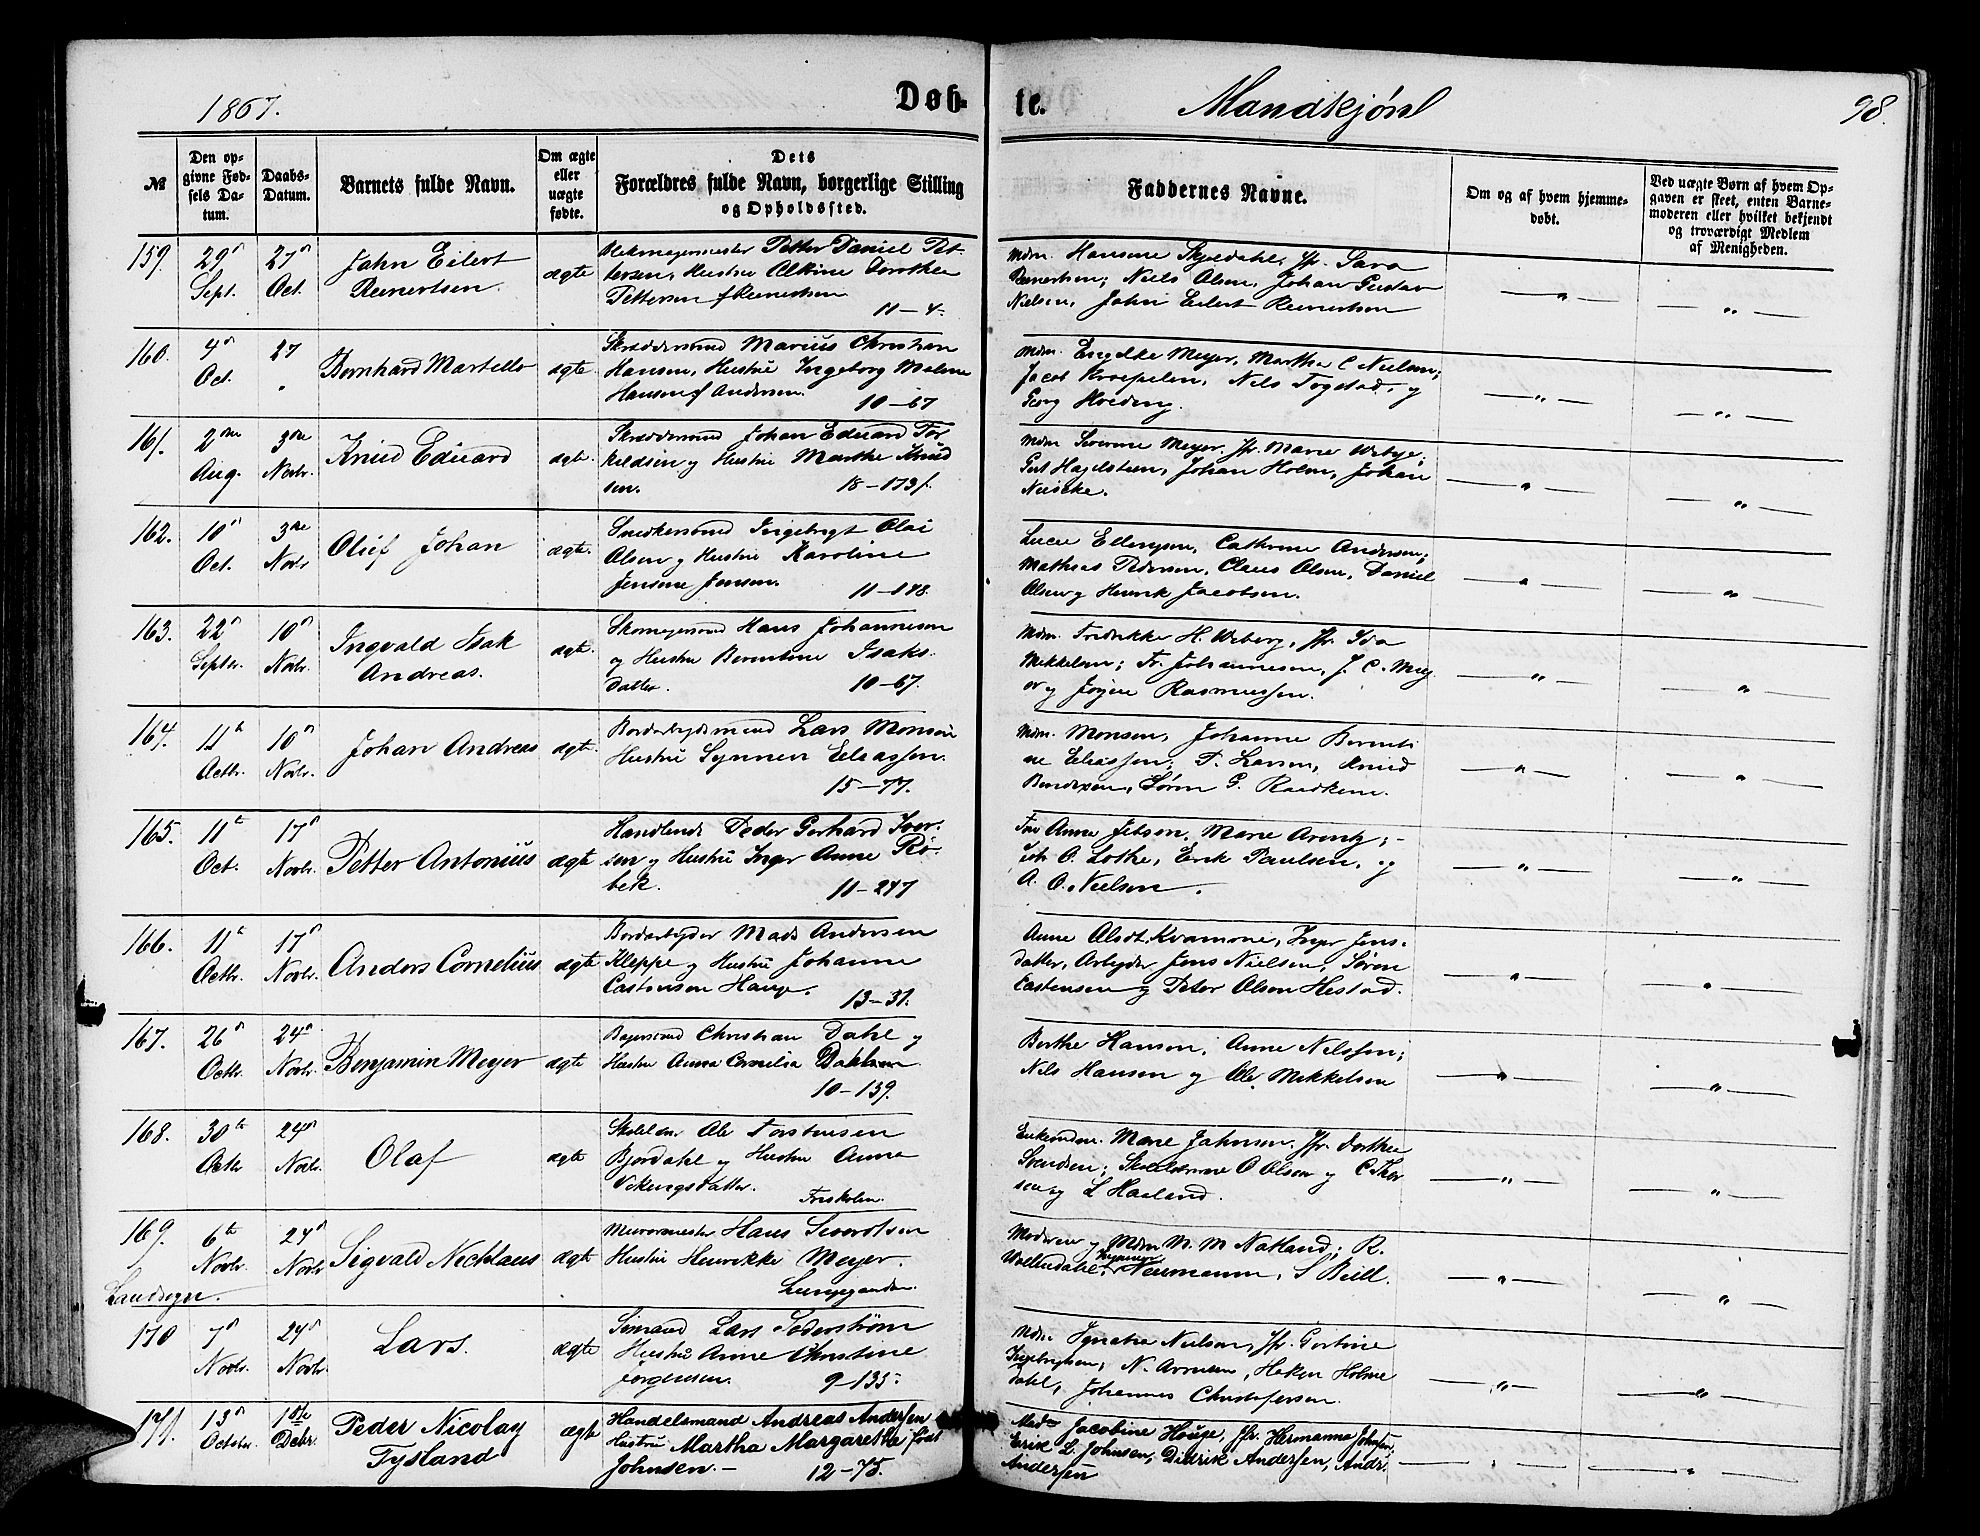 1867.
Døb-
te.
Mandkjøn
98.
№
Den op-
givne Fød-
sels Da-
tum.
Daabs-
Datum.
Barnets fulde Navn.
Om ægte
eller
uægte
fødte.
Dets
Forældres fulde Navn, borgerlige Stilling
og Opholdssted.
Faddernes Navne.
Om og af hvem hjemme-
døbt.
Ved uægte Børn af hvem Op-
gaven er skeet, enten Barne-
moderen eller hvilket bekjendt
og troværdigt Medlem
af Menigheden.
159. 29d Sept. 27d Oct.
John Eilert
Reinertsen.
ægte
Petter Daniel Pet-
tersen, Hustru Alkine Dorothea
Pettersen f Reinertsen
11-4
Mdm. Hansine Skjeldahl, Jfr. Sara
Reinertsen; Niels Olsen, Johan Gustav
Nielsen, John Eilert Reinertsen
160. 4d Oct. 27
Bernhard Martello
ægte.
Skræddersvend Marius Christian
Hansen, Hustru Ingeborg Malene
Hansen f Andersen.
10-67
Mdm. Engelke Meyer, Martha C Nielsen;
Jacob Kroepelen, Nils Togstad, og
Georg Hveding.
161. 2den Aug. 3die Novbr.
Knud Eduard
ægte.
Skræddersvend Johan Eduard Tor-
kildsen og Hustru Marthe Knud
sen.
18-173f.
Mdm Severine Meyer, Jfr. Marie Webye;
Gert Hagelsteen, Johan Holm, Johan
162. 10d Oct. 3die Novbr
Oluf Johan
ægte.
Snedkersvend Ingebrigt Olai
Olsen og Hustru Karoline
Jensine Jensen.
11-178.
Lucie Ellingsen, Cathrine Andersen;
Mathias Pedersen, Claus Olsen, Daniel
Olsen og Henrik Jacobsen.
163. 22d Septbr. 10d Novbr.
Ingvald Isak
Andreas.
ægte.
Skomagersvend Hans Johannesen
og Hustru Berentine Isaks-
datter.
10-67.
Mdm. Fredrikke H. Weberg, Jfr. Ida
Mikkelsen; Fr. Johannesen, J. C. Mey-
er og Jørgen Rasmussen.
164. 11te Octbr. 10d Novbr.
Johan Andreas
ægte.
Bordarbeidsmand Lars Monsen
Hustru Synneva Eliassen.
15-77.
Mdm. Monsen, Johanne Berenti-
ne Eliassen; P. Larsen, Knud
Bendixen, Søren G. Randkleve.
165. 11te Oct. 17d Novbr.
Petter Antonius
ægte
Handlende Peder Gerhard Iver-
sen og Hustru Inger Anne Rø-
bek.
11-247
Fru Anne Jebsen, Marie Arentz;
Joh. O. Lothe, Erik Paulsen, og
A. O. Nielsen.
166. 11te Octbr. 17d Novbr.
Anders Cornelius
ægte
Bordarbeyder Mads Andersen
Kleppe og Hustru Johanne
Castensen Hauge.
13-31.
Anne Alsdt. Kvamone, Inger Jens-
datter, Arbeyder Jens Nielsen, Søren
Castensen og Peter Olsen Hestad.
167. 26d Octbr. 24d Novbr.
Benjamin Meyer
ægte
Bagersvend Christian Dahl og
Hustru Anna Cornelia
10-139.
Berthe Hansen, Anne Nilssen;
Nils Hansen og Ole Mikkelsen
168. 30te Octbr 24d Novbr.
Olaf
ægte
Skolelær Ole Torstensen
Bjordahl og Hustru Anna
Vikingsdatter.
Friskolen.
Enkemdm. Marie Johnsen, Jfr. Dorthea
Svendsen; Skolelærerne O Olsen og C Thor
sen og L Haaland.
169. 6te Novbr. 24d Novbr
Landsogn.
Sigvald Nicklaus
ægte
Murermester Hans Sivertsen
Hustru Henrikke Meyer.
Lungegaarden.
Moderen og Mdm M. M Natland; R.
Wollendahl, Neumann, S Beill.
170 7d Novbr. 24d Novbr.
Lars.
ægte
Sømand Lars Søderstrøm
Hustru Anne Christine
Jørgensen.
9-135.
Mdm Ignatia Nielsen, Jfr. Gortine
Ingebrigtsen; N. Arnesen, Haken Holme
dahl, Johannes Christofersen.
171. 13d Octbr. 1ste Debr.
Peder Nicolay
Tysland
ægte
Handelsmand Andreas Andersen
Hustru Martha Margaretha født
Johnsen.
12-75.
Mad. Jacobine Houge, Jfr. Hermanna Johnsen,
Erik L. Johnsen, Didrik Andersen, Andr.
Andersen